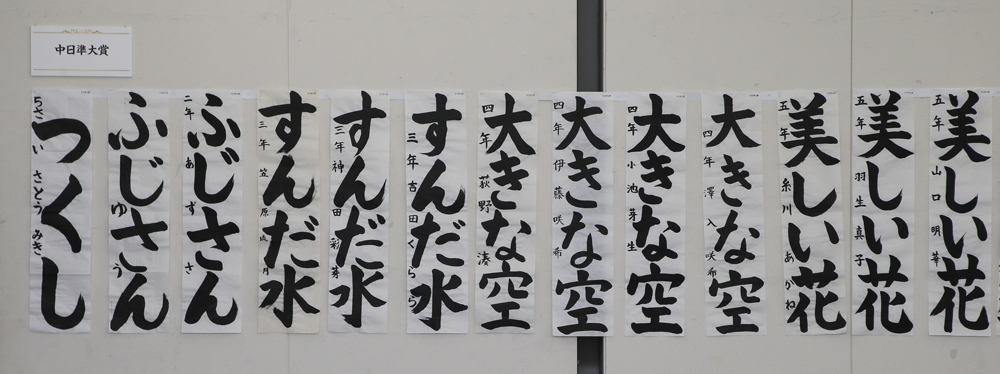 中日準大賞
つくし
5さい さとう みき
ふじさん
ゆう
ふじさん
二年 あずさ
すんだ水
三年 笠原
すんだ水
三年 神田彩芽
すんだ水
三年 吉田くらら
大きな空
四年 荻野湊
大きな空
四年 伊藤咲希
大きな空
四年 小池芽生
大きな空
四年 澤入咲希
美しい花
五年 糸川あかね
美しい花
五年 羽生真子
美しい花
五年 山口明華